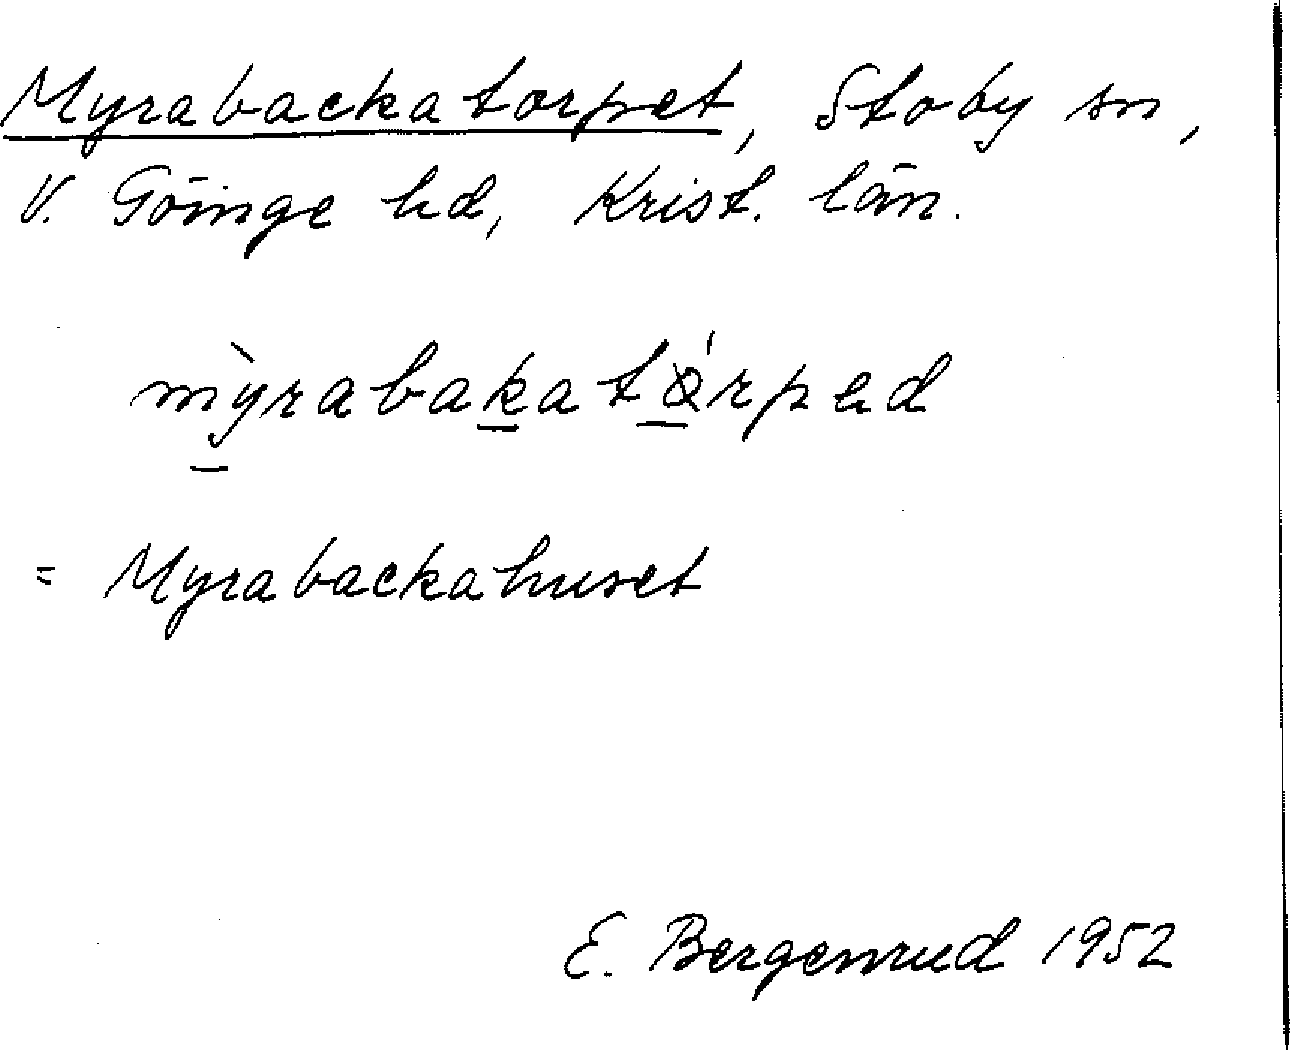 Myrabackatorpet, Stoby sn,
V. Göinge hd, Krist. län.
mỳrabakatårpəd
= Myrabackahuset
E. Bergenrud 1952